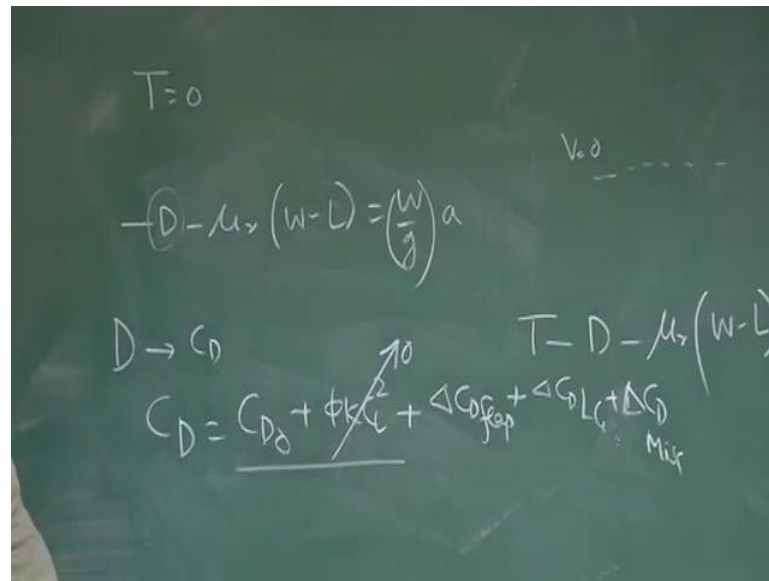 T=0
V=0
-D-μr(W-L)=(W/g)a
D→CD
T-D-μr(W-L)
CD=CD0+ϕKCL²→0+ΔCDflap+ΔCDLG+ΔCD
Misc